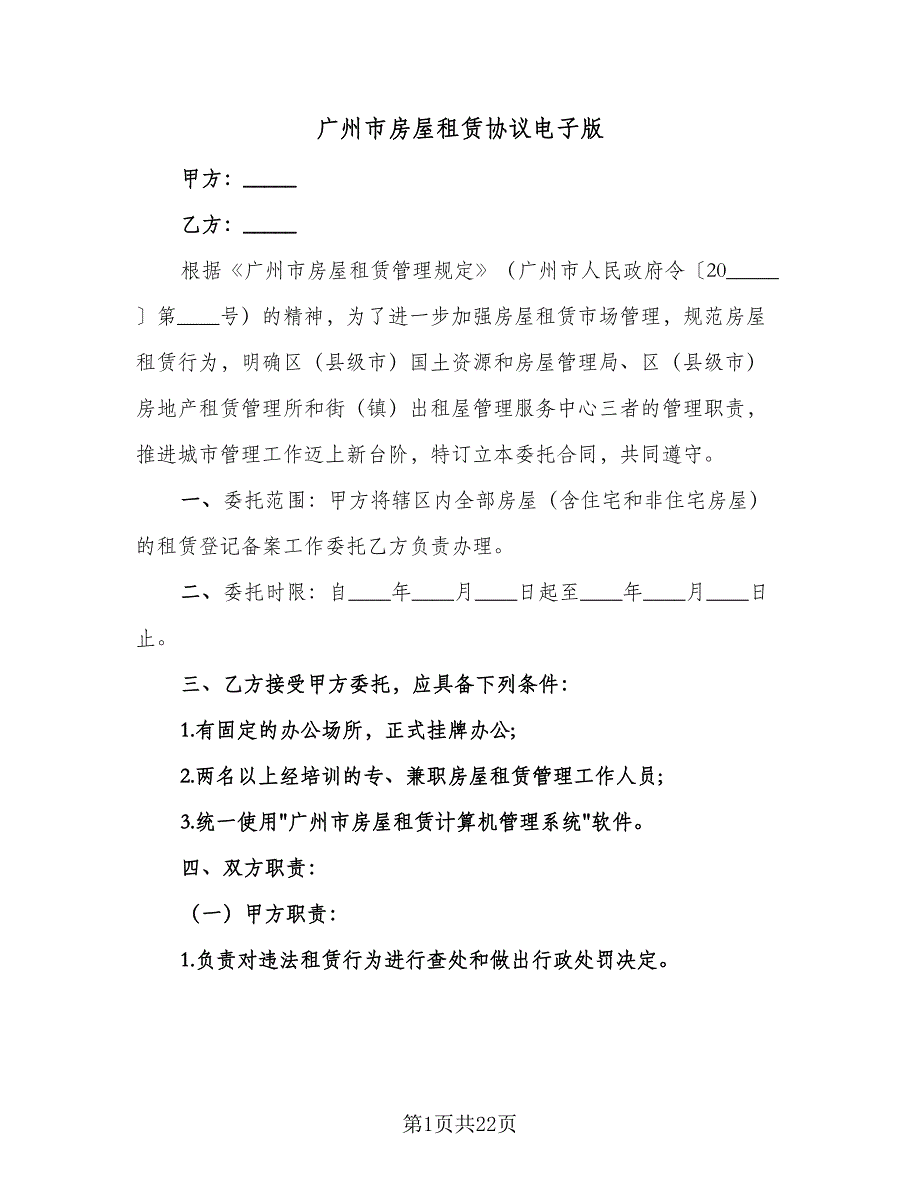 广州市房屋租赁协议电子版
甲方：_____
乙方：_____
根据《广州市房屋租赁管理规定》（广州市人民政府令〔20_____
〕第____号）的精神，为了进一步加强房屋租赁市场管理，规范房屋
租赁行为，明确区（县级市）国土资源和房屋管理局、区（县级市）
房地产租赁管理所和街（镇）出租屋管理服务中心三者的管理职责，
推进城市管理工作迈上新台阶，特订立本委托合同，共同遵守。
一、委托范围：甲方将辖区内全部房屋（含住宅和非住宅房屋）
的租赁登记备案工作委托乙方负责办理。
二、委托时限：自____年____月____日起至____年____月____日
止。
三、乙方接受甲方委托，应具备下列条件：
1.有固定的办公场所，正式挂牌办公;
2.两名以上经培训的专、兼职房屋租赁管理工作人员;
3.统一使用"广州市房屋租赁计算机管理系统"软件。
四、双方职责：
（一）甲方职责：
1.负责对违法租赁行为进行查处和做出行政处罚决定。
第1页共22页